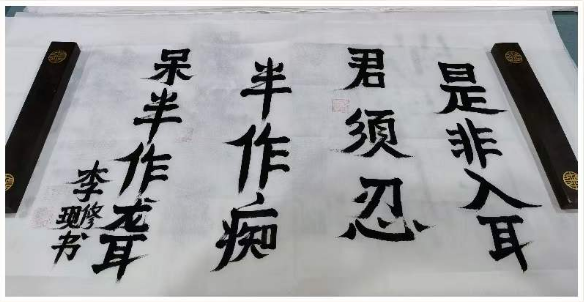 是非入耳
君须忍
半作痴
呆半作聋
李修现书